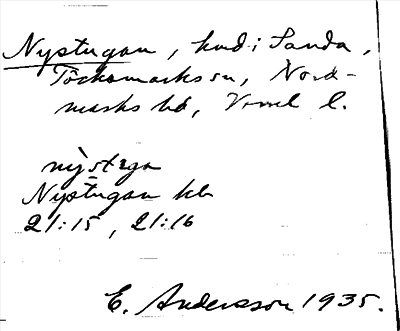 Nystugan, knd i Sanda,
Töcksmarks sn, Nord-
marks hd, Vrml l.
nỳstega
Nystugan kb
21:15, 21:16
E. Andersson 1935.